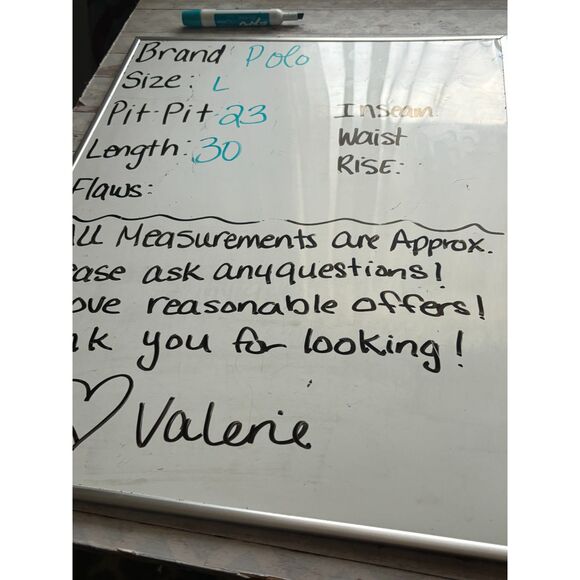 Brand Polo
Size: L
Pit-Pit-23
Length: 30
Flaws:
Inseam
Waist
RISE:
ll Measurements are Approx.
ease ask anyquestions!
ove reasonable offers!
nk you for looking!
Valerie